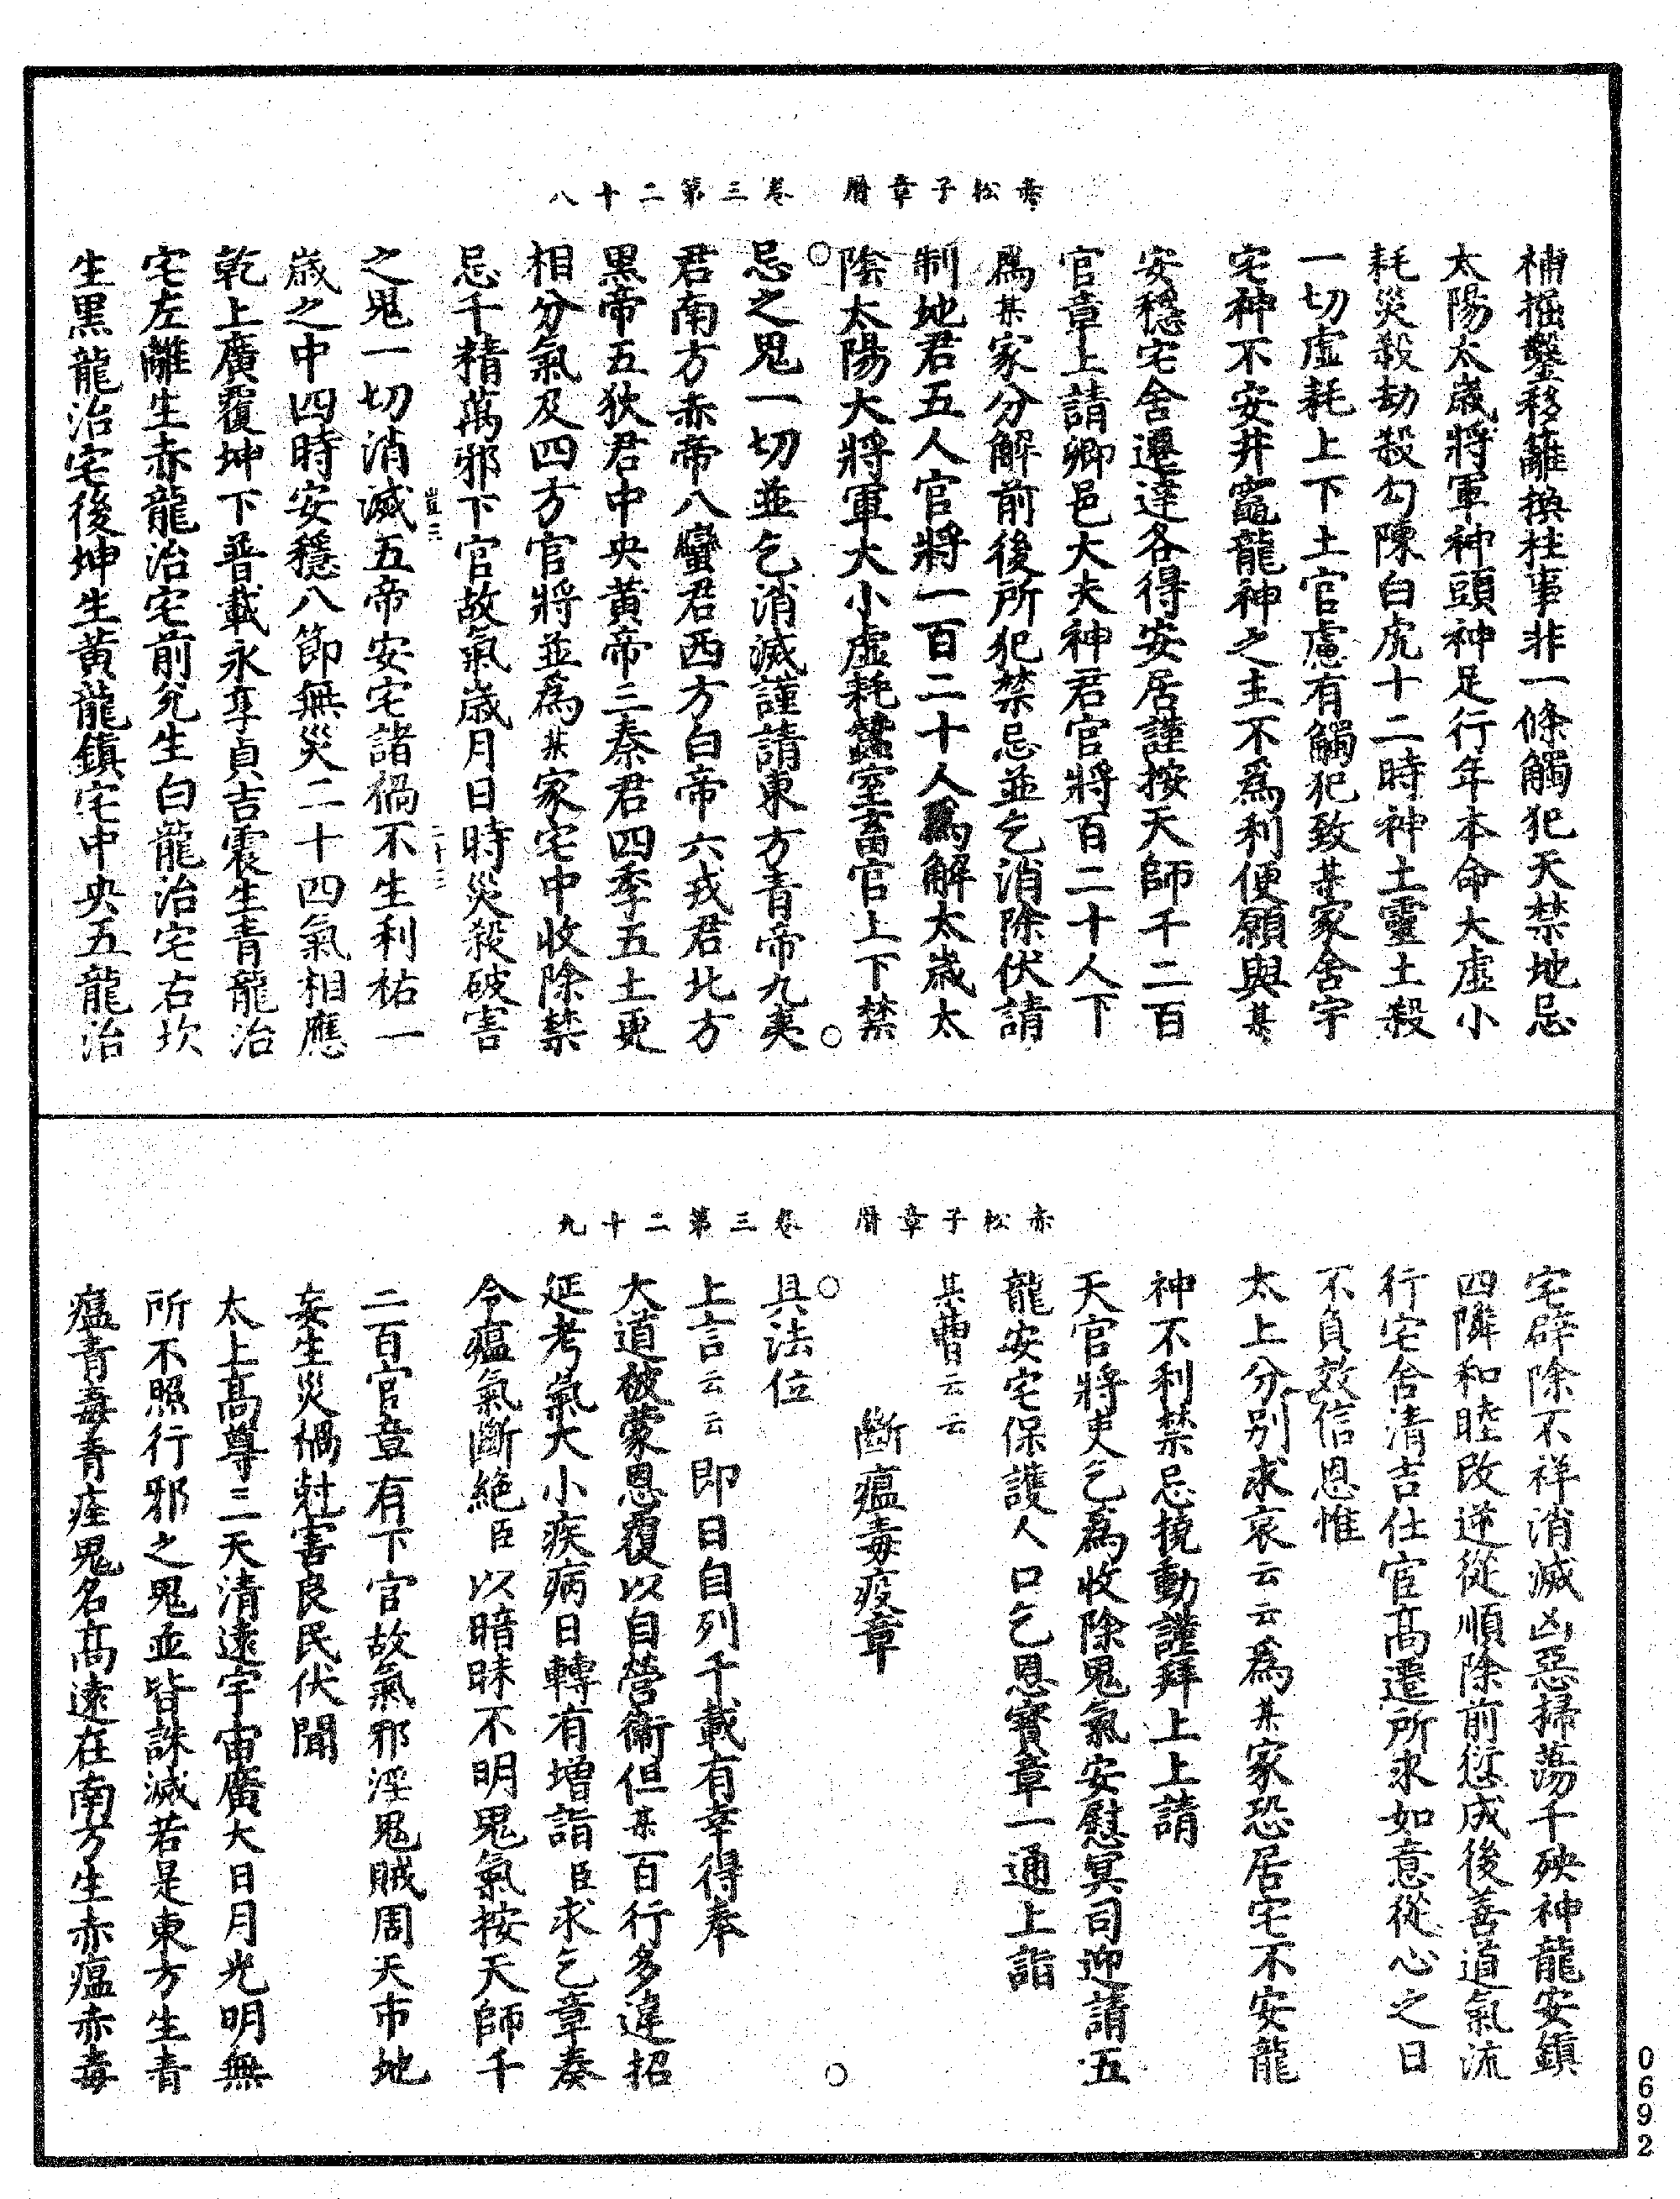 赤松子章曆　卷三第二十八
補掘鑿移籬換柱事非一條觸犯天禁地忌
太陽太歲將軍神頭神足行年本命大虛小
耗災殺劫殺勾陳白虎十二時神土靈土殺
一切虛耗上下土官慮有觸犯致某家舍宇
宅神不安井竈龍神之主不爲利便願與某
安穩宅舍遷達各得安居謹按天師千二百
官章上請卿邑大夫神君官將百二十人下
爲某家分解前後所犯禁忌並乞消除伏請
制地君五人官將一百二十人爲解太歲太
陰太陽大將軍大小虛耗蠶室畜官上下禁
忌之鬼一切並乞消滅謹請東方青帝九夷
君南方赤帝八蠻君西方白帝六戎君北方
黑帝五狄君中央黃帝三秦君四季五土更
相分氣及四方官將並爲某家宅中收除禁
忌千精萬邪下官故氣歲月日時災殺破害
豈二　二十三
之鬼一切消滅五帝安宅諸禍不生利祐一
歲之中四時安穩八節無災二十四氣相應
乾上廣覆坤下普載永享貞吉震生青龍治
宅左離生赤龍治宅前兌生白龍治宅右坎
生黑龍治宅後坤生黃龍鎮宅中央五龍治
赤松子章曆　卷三第二十九
宅辟除不祥消滅凶惡掃蕩千殃神龍安鎮
四隣和睦改逆從順除前愆成後善道氣流
行宅舍清吉仕宦高遷所求如意從心之日
不負效信恩惟
太上分別求哀云云爲某家恐居宅不安龍
神不利禁忌撓動謹拜上上請
天官將吏乞爲收除鬼氣安慰冥司迎請五
龍安宅保護人口乞恩寶章一通上詣
某曹云云
斷瘟毒疫章
具法位
上言云云即日自列千載有幸得奉
大道被蒙恩覆以自營衛但某百行多違招
延考氣大小疾病日轉有增詣臣求乞章奏
令瘟氣斷絕臣以暗昧不明鬼氣按天師千
二百官章有下官故氣邪淫鬼賊周天帀地
妄生災禍尅害良民伏聞
太上高尊三天清遠宇宙廣大日月光明無
所不照行邪之鬼並皆誅滅若是東方生青
瘟青毒青疰鬼名高遠在南方生赤瘟赤毒
0692